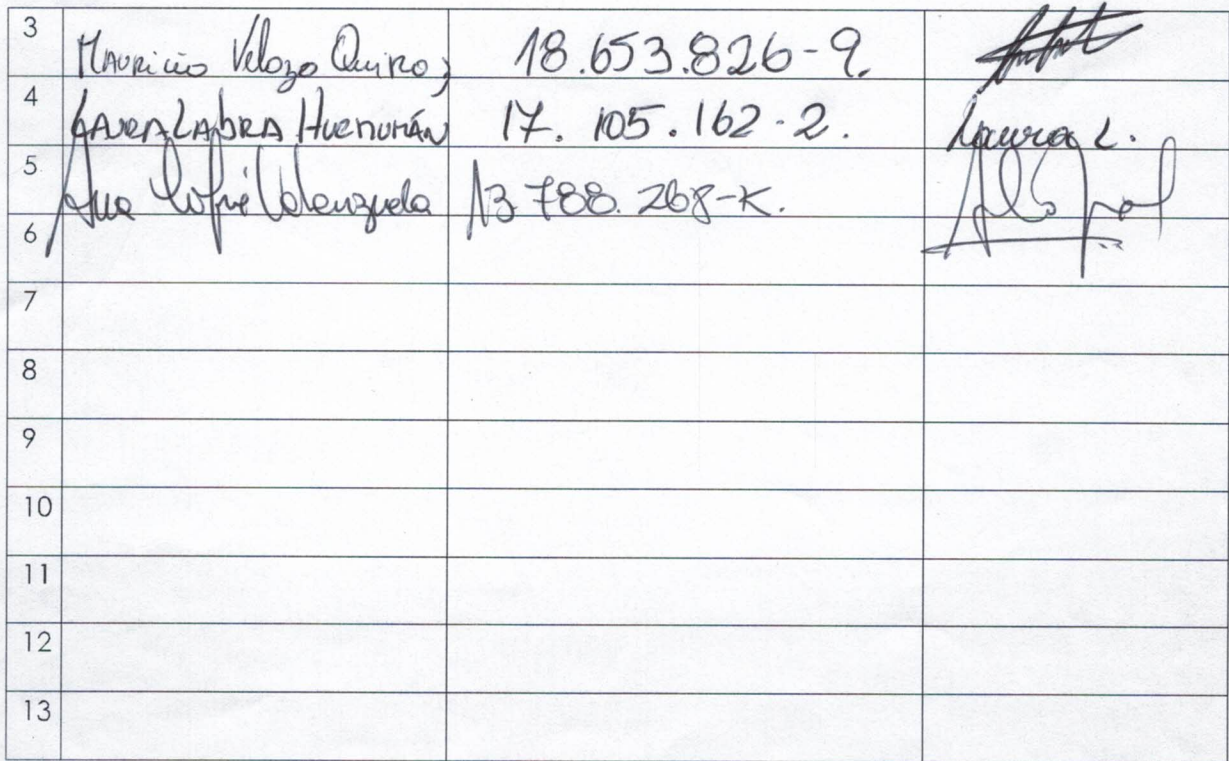 3 Mauricio Velozo Quiroz 18.653.826-9.
4 LAURA LABRA HUENUMÁN 17.105.162-2. Laura L.
5 Ana Cofré Valenzuela 13.788.268-K.
6
7
8
9
10
11
12
13